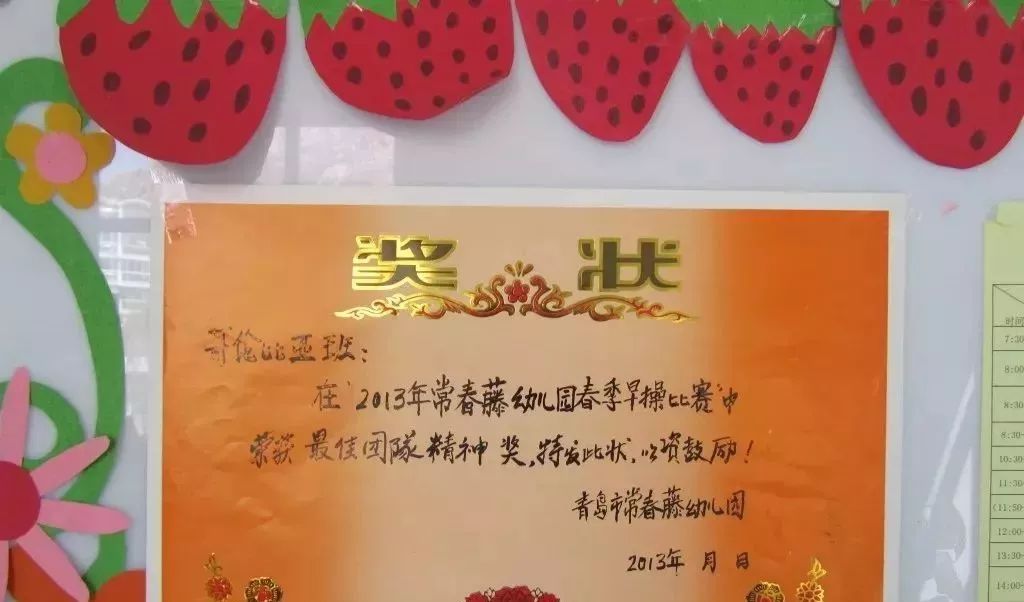 奖状
哥伦比亚班：
在2013年常春藤幼儿园春季早操比赛中
荣获 最佳团隊精神 奖，特发此状，以资鼓励！
青岛市常春藤幼儿园
2013年 月 日
时间
7:30
8:00
8:30
8:30-
10:30
11:30
(11:50-
12:00
13:30
14:00-